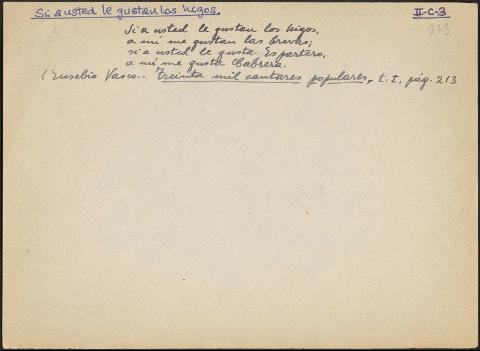 Si a usted le gustan los higos. II-C-3
273
Si a usted le gustan los higos,
a mí me gustan las brevas;
si a usted le gusta Espartero,
a mí me gusta Cabrera.
(Eusebio Vasco.- Treinta mil cantares populares, t. I, pág. 213